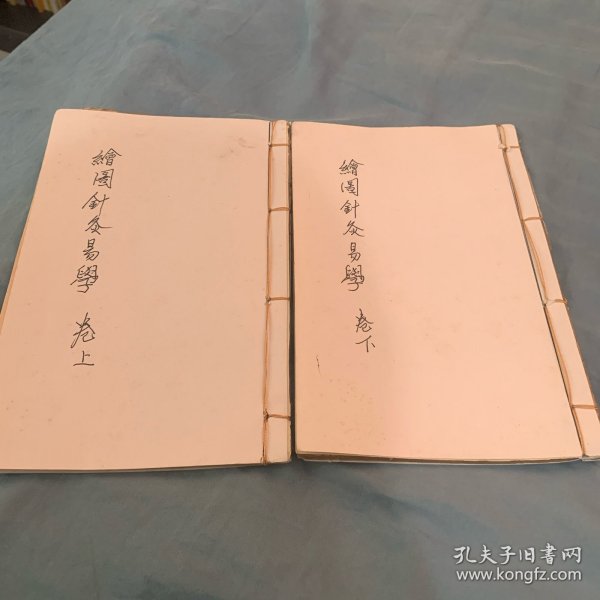 繪圖針灸易學 卷上
繪圖針灸易學 卷下
孔夫子旧书网
www.kongfz.com